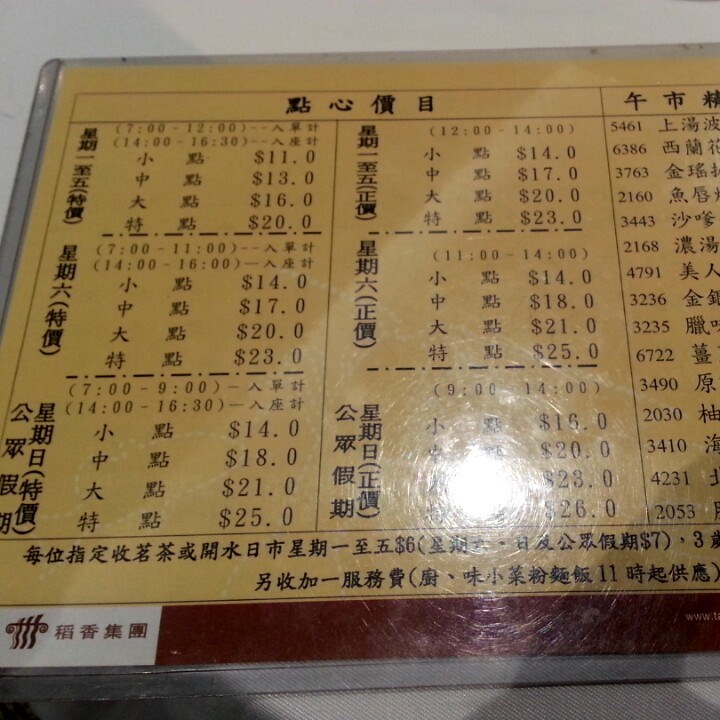 點心價目
星期一至五(特價)
(7:00-12:00)--入單計
(14:00-16:30)--入座計
小點 $11.0
中點 $13.0
大點 $16.0
特點 $20.0
星期一至五(正價)
(12:00-14:00)
小點 $14.0
中點 $17.0
大點 $20.0
特點 $23.0
星期六(特價)
(7:00-11:00)--入單計
(14:00-16:00)--入座計
小點 $14.0
中點 $17.0
大點 $20.0
特點 $23.0
星期六(正價)
(11:00-14:00)
小點 $14.0
中點 $18.0
大點 $21.0
特點 $25.0
星期日(特價)
公眾假期
(7:00-9:00)--入單計
(14:00-16:30)--入座計
小點 $14.0
中點 $18.0
大點 $21.0
特點 $25.0
星期日(正價)
公眾假期
(9:00-14:00)
小點 $16.0
中點 $20.0
點 $23.0
$26.0
午市精
5461 上湯波
6386 西蘭花
3763 金瑤
2160 魚唇
3443 沙嗲
2168 濃湯
4791 美人
3236 金銀
3235 臘味
6722 薑
3490 原
2030 柚
3410 海
4231
2053
每位指定收茗茶或開水日市星期一至五$6(星期六、日及公眾假期$7), 3歲
另收加一服務費(廚、味小菜粉麵飯11時起供應)
稻香集團
www.ta